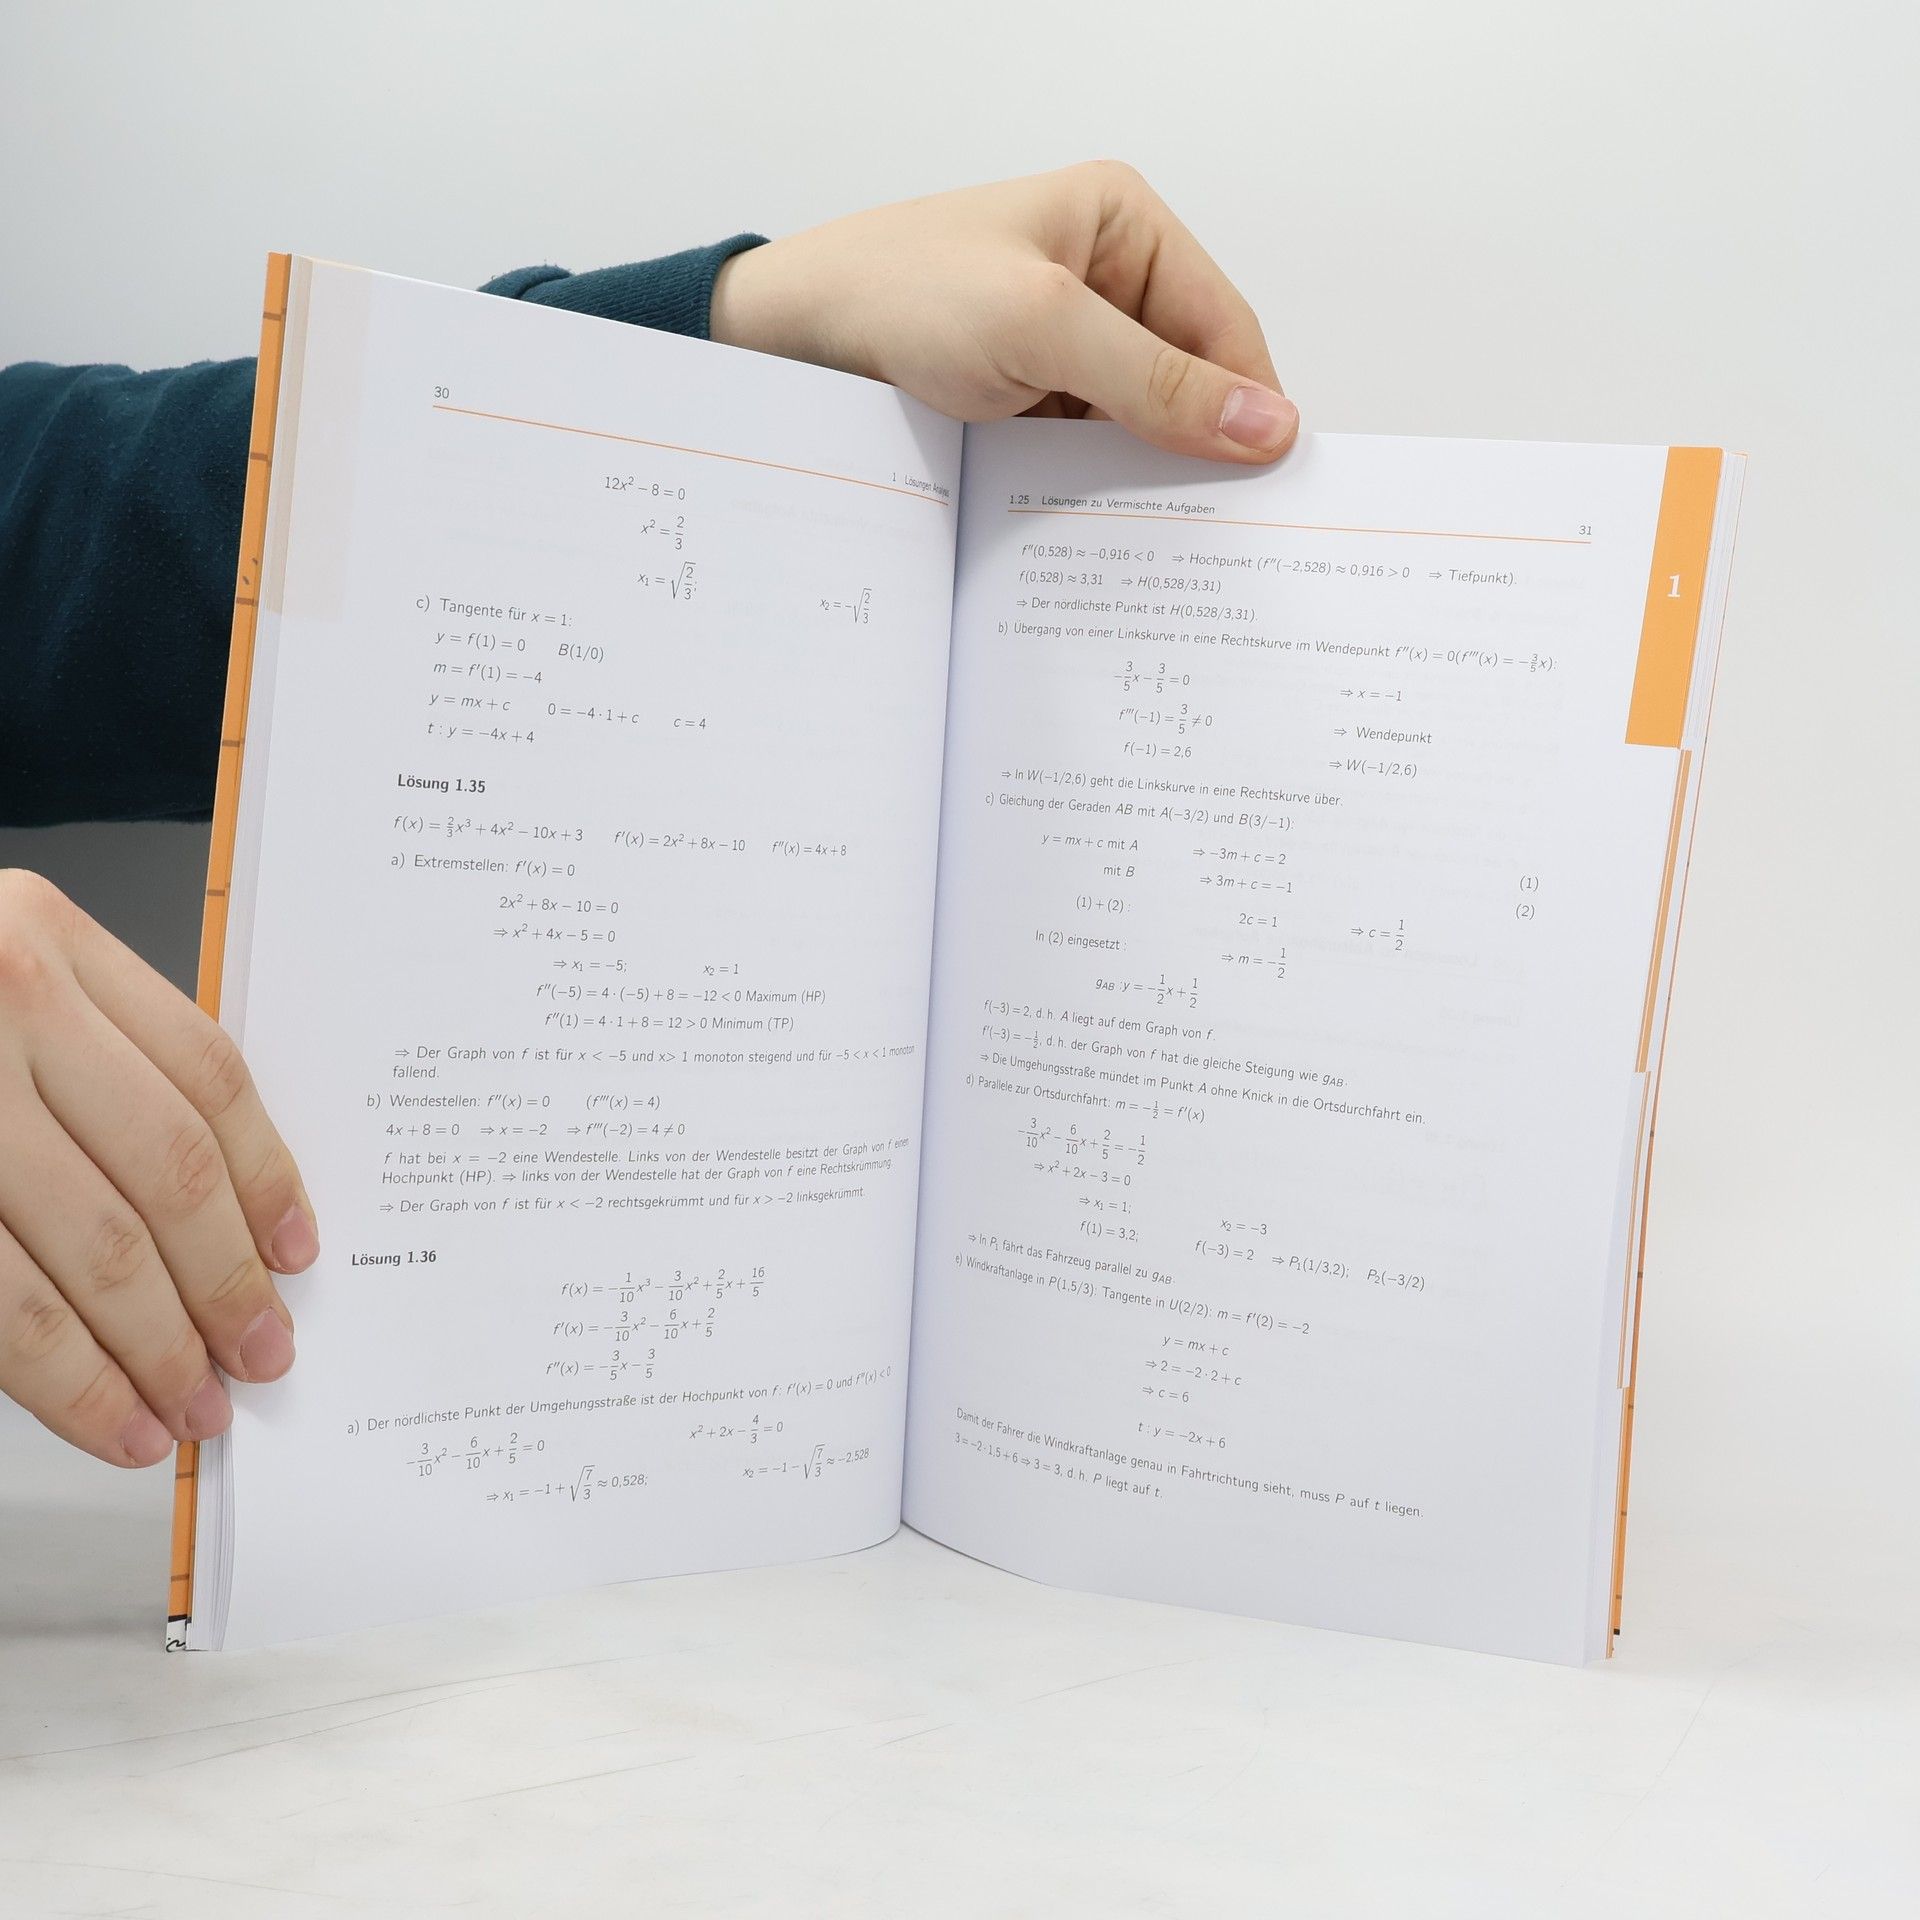 30
1 Lösungen Analysis
12x² − 8 = 0
x² = 2/3
x₁ = √(2/3); x₂ = −√(2/3)
c) Tangente für x = 1:
y = f(1) = 0 B(1/0)
m = f′(1) = −4
y = mx + c 0 = −4 · 1 + c c = 4
t : y = −4x + 4
Lösung 1.35
f(x) = 2/3x³ + 4x² − 10x + 3 f′(x) = 2x² + 8x − 10 f″(x) = 4x + 8
a) Extremstellen: f′(x) = 0
2x² + 8x − 10 = 0
⇒ x² + 4x − 5 = 0
⇒ x₁ = −5; x₂ = 1
f″(−5) = 4 · (−5) + 8 = −12 < 0 Maximum (HP)
f″(1) = 4 · 1 + 8 = 12 > 0 Minimum (TP)
⇒ Der Graph von f ist für x < −5 und x> 1 monoton steigend und für −5 < x < 1 monoton
fallend.
b) Wendestellen: f″(x) = 0 (f‴(x) = 4)
4x + 8 = 0 ⇒ x = −2 ⇒ f‴(−2) = 4 ≠ 0
f hat bei x = −2 eine Wendestelle. Links von der Wendestelle besitzt der Graph von f einen
Hochpunkt (HP). ⇒ links von der Wendestelle hat der Graph von f eine Rechtskrümmung.
⇒ Der Graph von f ist für x < −2 rechtsgekrümmt und für x > −2 linksgekrümmt.
Lösung 1.36
f(x) = −1/10x³ − 3/10x² + 2/5x + 16/5
f′(x) = −3/10x² − 6/10x + 2/5
f″(x) = −3/5x − 3/5
a) Der nördlichste Punkt der Umgehungsstraße ist der Hochpunkt von f: f′(x) = 0 und f″(x) < 0
−3/10x² − 6/10x + 2/5 = 0 x² + 2x − 4/3 = 0
⇒ x₁ = −1 + √(7/3) ≈ 0,528; x₂ = −1 − √(7/3) ≈ −2,528
1.25 Lösungen zu Vermischte Aufgaben
31
1
f″(0,528) ≈ −0,916 < 0 ⇒ Hochpunkt (f″(−2,528) ≈ 0,916 > 0 ⇒ Tiefpunkt).
f(0,528) ≈ 3,31 ⇒ H(0,528/3,31)
⇒ Der nördlichste Punkt ist H(0,528/3,31).
b) Übergang von einer Linkskurve in eine Rechtskurve im Wendepunkt f″(x) = 0(f‴(x) = −3/5x):
−3/5x − 3/5 = 0 ⇒ x = −1
f‴(−1) = 3/5 ≠ 0 ⇒ Wendepunkt
f(−1) = 2,6 ⇒ W(−1/2,6)
⇒ In W(−1/2,6) geht die Linkskurve in eine Rechtskurve über.
c) Gleichung der Geraden AB mit A(−3/2) und B(3/−1):
y = mx + c mit A ⇒ −3m + c = 2 (1)
mit B ⇒ 3m + c = −1 (2)
(1) + (2) : 2c = 1 ⇒ c = 1/2
In (2) eingesetzt : ⇒ m = −1/2
gAB :y = −1/2x + 1/2
f(−3) = 2, d. h. A liegt auf dem Graph von f.
f′(−3) = −1/2, d. h. der Graph von f hat die gleiche Steigung wie gAB.
⇒ Die Umgehungsstraße mündet im Punkt A ohne Knick in die Ortsdurchfahrt ein.
d) Parallele zur Ortsdurchfahrt: m = −1/2 = f′(x)
−3/10x² − 6/10x + 2/5 = −1/2
⇒ x² + 2x − 3 = 0
⇒ x₁ = 1; x₂ = −3
f(1) = 3,2; f(−3) = 2 ⇒ P₁(1/3,2); P₂(−3/2)
⇒ In P₁ fährt das Fahrzeug parallel zu gAB.
e) Windkraftanlage in P(1,5/3): Tangente in U(2/2): m = f′(2) = −2
y = mx + c
⇒ 2 = −2 · 2 + c
⇒ c = 6
t : y = −2x + 6
Damit der Fahrer die Windkraftanlage genau in Fahrtrichtung sieht, muss P auf t liegen.
3 = −2 · 1,5 + 6 ⇒ 3 = 3, d. h. P liegt auf t.